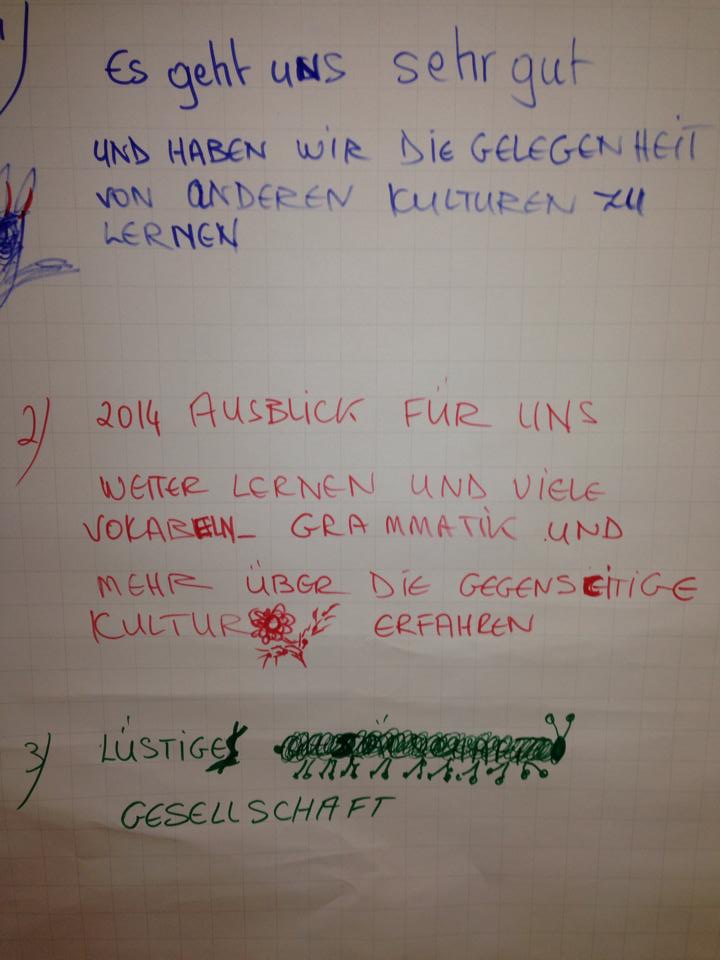 1)
Es geht uNS sehr gut
UND HABEN WIR DiE GELEGENHEiT
VON aNDEREN KULTUREN ZU
LERNEN
2) 2014 AUSBLICK FÜR UNS
WEITER LERNEN UND VIELE
VOKABELN_ GRAMMATIK UND
MEHR ÜBER DIE GEGENSEITIGE
KULTUR ERFAHREN
3) LÜSTIGE
GESELLSCHAFT